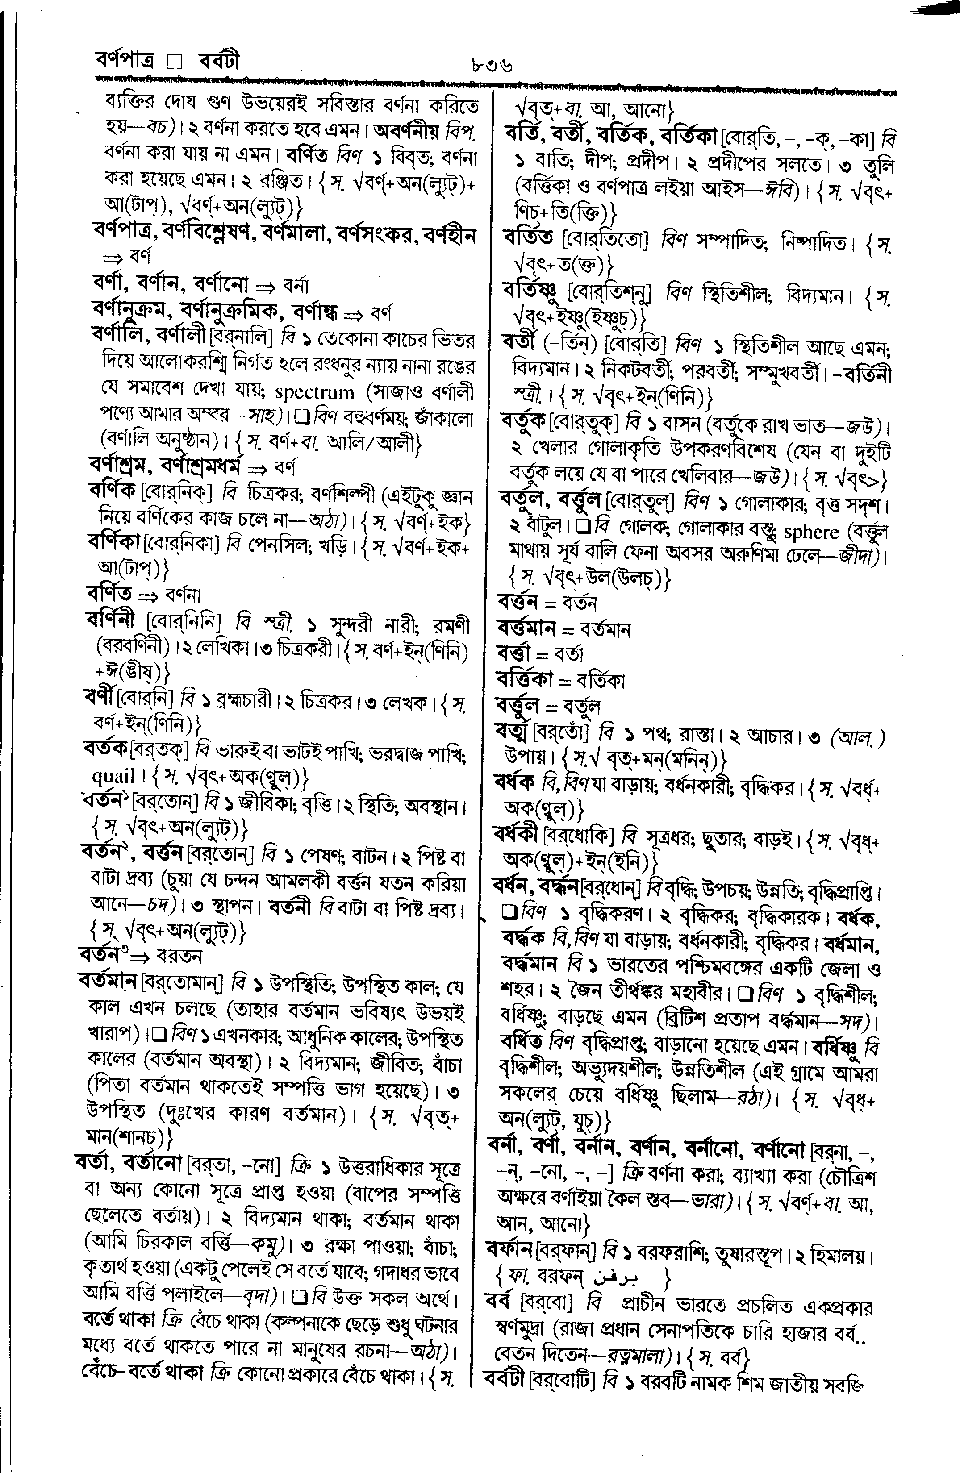 বর্ণপাত্র □ বর্বটী
৮৩৬
ব্যক্তির দোষ গুণ উভয়েরই সবিস্তার বর্ণনা করিতে
হয়—বচ)। ২ বর্ণনা করতে হবে এমন। অবর্ণনীয় বিপ.
বর্ণনা করা যায় না এমন। বর্ণিত বিণ ১ বিবৃত; বর্ণনা
করা হয়েছে এমন। ২ রঞ্জিত। {স. √বর্ণ্+অন(ল্যুট্)+
আ(টাপ্), √বর্ণ্+অন(ল্যুট্)}
বর্ণপাত্র, বর্ণবিশ্লেষণ, বর্ণমালা, বর্ণসংকর, বর্ণহীন
⇒ বর্ণ
বর্ণা, বর্ণান, বর্ণানো ⇒ বর্না
বর্ণানুক্রম, বর্ণানুক্রমিক, বর্ণান্ধ ⇒ বর্ণ
বর্ণালি, বর্ণালী [বর্‌নালি] বি ১ তেকোনা কাচের ভিতর
দিয়ে আলোকরশ্মি নির্গত হলে রংধনুর ন্যায় নানা রঙের
যে সমাবেশ দেখা যায়; spectrum (সাজাও বর্ণালী
পণ্যে আমার অম্বর -সাহ)। □ বিণ বহুবর্ণময়; জাঁকালো
(বর্ণালি অনুষ্ঠান)। {স. বর্ণ+বা. আলি/আলী}
বর্ণাশ্রম, বর্ণাশ্রমধর্ম ⇒ বর্ণ
বর্ণিক [বোর্‌নিক্] বি চিত্রকর; বর্ণশিল্পী (এইটুকু জ্ঞান
নিয়ে বর্ণিকের কাজ চলে না—অঠা)। {স. √বর্ণ+ইক}
বর্ণিকা [বোর্‌নিকা] বি পেনসিল; খড়ি। {স. √বর্ণ+ইক+
আ(টাপ্)}
বর্ণিত ⇒ বর্ণনা
বর্ণিনী [বোর্‌নিনি] বি স্ত্রী. ১ সুন্দরী নারী; রমণী
(বরবর্ণিনী)। ২ লেখিকা। ৩ চিত্রকরী। {স. বর্ণ+ইন্(ণিনি)
+ঈ(ঙীষ্)}
বর্ণী [বোর্‌নি] বি ১ ব্রহ্মচারী। ২ চিত্রকর। ৩ লেখক। {স.
বর্ণ+ইন্(ণিনি)}
বর্তক [বর্‌তক্] বি ভারুই বা ভাটই পাখি; ভরদ্বাজ পাখি;
quail। {স. √বৃৎ+অক(ণ্বুল্)}
বর্তন১ [বর্‌তোন্] বি ১ জীবিকা; বৃত্তি। ২ স্থিতি; অবস্থান।
{স. √বৃৎ+অন(ল্যুট্)}
বর্তন২, বর্ত্তন [বর্‌তোন্] বি ১ পেষণ; বাটন। ২ পিষ্ট বা
বাটা দ্রব্য (চুয়া যে চন্দন আমলকী বর্ত্তন যতন করিয়া
আনে—চদ)। ৩ স্থাপন। বর্তনী বি বাটা বা পিষ্ট দ্রব্য।
{স. √বৃৎ+অন(ল্যুট্)}
বর্তন৩ ⇒ বরতন
বর্তমান [বর্‌তোমান্] বি ১ উপস্থিতি; উপস্থিত কাল; যে
কাল এখন চলছে (তাহার বর্তমান ভবিষ্যৎ উভয়ই
খারাপ)। □ বিণ ১ এখনকার; আধুনিক কালের; উপস্থিত
কালের (বর্তমান অবস্থা)। ২ বিদ্যমান; জীবিত; বাঁচা
(পিতা বর্তমান থাকতেই সম্পত্তি ভাগ হয়েছে)। ৩
উপস্থিত (দুঃখের কারণ বর্তমান)। {স. √বৃত্+
মান(শানচ)}
বর্তা, বর্তানো [বর্‌তা, -নো] ক্রি ১ উত্তরাধিকার সূত্রে
বা অন্য কোনো সূত্রে প্রাপ্ত হওয়া (বাপের সম্পত্তি
ছেলেতে বর্তায়)। ২ বিদ্যমান থাকা; বর্তমান থাকা
(আমি চিরকাল বর্ত্তি—কমু)। ৩ রক্ষা পাওয়া; বাঁচা;
কৃতার্থ হওয়া (একটু পেলেই সে বর্তে যাবে; গদাধর ভাবে
আমি বর্ত্তি পলাইলে—বৃদা)। □ বি উক্ত সকল অর্থে।
বর্তে থাকা ক্রি বেঁচে থাকা (কল্পনাকে ছেড়ে শুধু ঘটনার
মধ্যে বর্তে থাকতে পারে না মানুষের রচনা—অঠা)।
বেঁচে-বর্তে থাকা ক্রি কোনো প্রকারে বেঁচে থাকা। {স.
√বৃত্+বা. আ, আনো}
বর্তি, বর্তী, বর্তিক, বর্তিকা [বোর্‌তি, -, -ক্, -কা] বি
১ বাতি; দীপ; প্রদীপ। ২ প্রদীপের সলতে। ৩ তুলি
(বর্ত্তিকা ও বর্ণপাত্র লইয়া আইস—ঈবি)। {স. √বৃৎ+
ণিচ+তি(ক্তি)}
বর্তিত [বোর্‌তিতো] বিণ সম্পাদিত; নিষ্পাদিত। {স.
√বৃৎ+ত(ক্ত)}
বর্তিষ্ণু [বোর্‌তিশ্‌নু] বিণ স্থিতিশীল; বিদ্যমান। {স.
√বৃৎ+ইষ্ণু(ইষ্ণুচ)}
বর্তী (-র্তিন্) [বোর্‌তি] বিণ ১ স্থিতিশীল আছে এমন;
বিদ্যমান। ২ নিকটবর্তী; পরবর্তী; সম্মুখবর্তী। -বর্তিনী
স্ত্রী.। {স. √বৃৎ+ইন্(ণিনি)}
বর্তুক [বোর্‌তুক্] বি ১ বাসন (বর্তুকে রাখ ভাত—জউ)।
২ খেলার গোলাকৃতি উপকরণবিশেষ (যেন বা দুইটি
বর্তুক লয়ে যে বা পারে খেলিবার—জউ)। {স. √বৃৎ>}
বর্তুল, বর্ত্তুল [বোর্‌তুল্] বিণ ১ গোলাকার; বৃত্ত সদৃশ।
২ বাঁটুল। □ বি গোলক; গোলাকার বস্তু; sphere (বর্ত্তুল
মাথায় সূর্য বালি ফেনা অবসর অরুণিমা ঢেলে—জীদা)।
{স. √বৃৎ+উল(উলচ)}
বর্ত্তন = বর্তন
বর্ত্তমান = বর্তমান
বর্ত্তা = বর্তা
বর্ত্তিকা = বর্তিকা
বর্ত্তুল = বর্তুল
বর্ত্ম [বর্‌তোঁ] বি ১ পথ; রাস্তা। ২ আচার। ৩ (আল.)
উপায়। {স.√ বৃত্+মন্(মনিন্)}
বর্ধক বি, বিণ যা বাড়ায়; বর্ধনকারী; বৃদ্ধিকর। {স. √বর্ধ্+
অক(ণ্বুল্)}
বর্ধকী [বর্‌ধোকি] বি সূত্রধর; ছুতার; বাড়ই। {স. √বৃধ্+
অক(ণ্বুল্)+ইন্(ইনি)}
বর্ধন, বর্দ্ধন [বর্‌ধোন্] বি বৃদ্ধি; উপচয়; উন্নতি; বৃদ্ধিপ্রাপ্তি।
□ বিণ ১ বৃদ্ধিকরণ। ২ বৃদ্ধিকর; বৃদ্ধিকারক। বর্ধক,
বর্দ্ধক বি, বিণ যা বাড়ায়; বর্ধনকারী; বৃদ্ধিকর। বর্ধমান,
বর্দ্ধমান বি ১ ভারতের পশ্চিমবঙ্গের একটি জেলা ও
শহর। ২ জৈন তীর্থঙ্কর মহাবীর। □ বিণ ১ বৃদ্ধিশীল;
বর্ধিষ্ণু; বাড়ছে এমন (ব্রিটিশ প্রতাপ বর্দ্ধমান—সদ)।
বর্ধিত বিণ বৃদ্ধিপ্রাপ্ত; বাড়ানো হয়েছে এমন। বর্ধিষ্ণু বি
বৃদ্ধিশীল; অভ্যুদয়শীল; উন্নতিশীল (এই গ্রামে আমরা
সকলের চেয়ে বর্ধিষ্ণু ছিলাম—রঠা)। {স. √বৃধ্+
অন(ল্যুট, যুচ্)}
বর্না, বর্ণা, বর্নান, বর্ণান, বর্নানো, বর্ণানো [বর্‌না, -,
-ন্, -নো, -, -] ক্রি বর্ণনা করা; ব্যাখ্যা করা (চৌত্রিশ
অক্ষরে বর্ণাইয়া কৈল স্তব—ভারা)। {স. √বর্ণ্+বা. আ,
আন, আনো}
বর্ফান [বর্‌ফান্] বি ১ বরফরাশি; তুষারস্তূপ। ২ হিমালয়।
{ফা. বরফন্ برفن }
বর্ব [বর্‌বো] বি প্রাচীন ভারতে প্রচলিত একপ্রকার
স্বর্ণমুদ্রা (রাজা প্রধান সেনাপতিকে চারি হাজার বর্ব..
বেতন দিতেন—রত্নমালা)। {স. বর্ব}
বর্বটী [বর্‌বোটি] বি ১ বরবটি নামক শিম জাতীয় সবজি